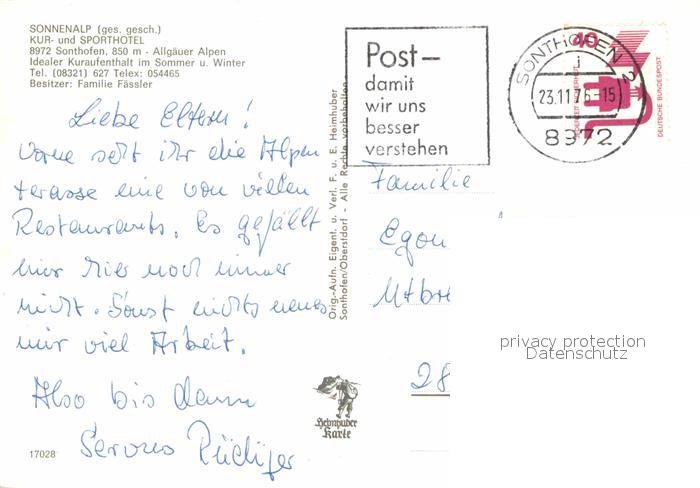 SONNENALP (ges. gesch.)
KUR- und SPORTHOTEL
8972 Sonthofen, 850 m - Allgäuer Alpen
Idealer Kuraufenthalt im Sommer u. Winter
Tel. (08321) 627 Telex: 054465
Besitzer: Familie Fässler
Liebe Eltern!
Vorne seht ihr die Alpen
terasse eine von vielen
Restaurants. Es gefällt
mir hier noch immer
nicht. Sonst nichts neues
nur viel Arbeit.
Also bis dann
Servus Rüdiger
17028
Orig.-Aufn. Eigent. u. Verl. F. u. E. Heimhuber
Sonthofen/Oberstdorf - Alle Rechte vorbehalten
Heimhuber
Karte
Post –
damit
wir uns
besser
verstehen
SONTHOFEN 2
i
23.11.76-15
8972
40
DEUTSCHE BUNDESPOST
Familie
Egon
28
privacy protection
Datenschutz